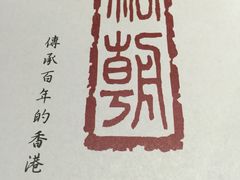 朝
傳承百年的香港